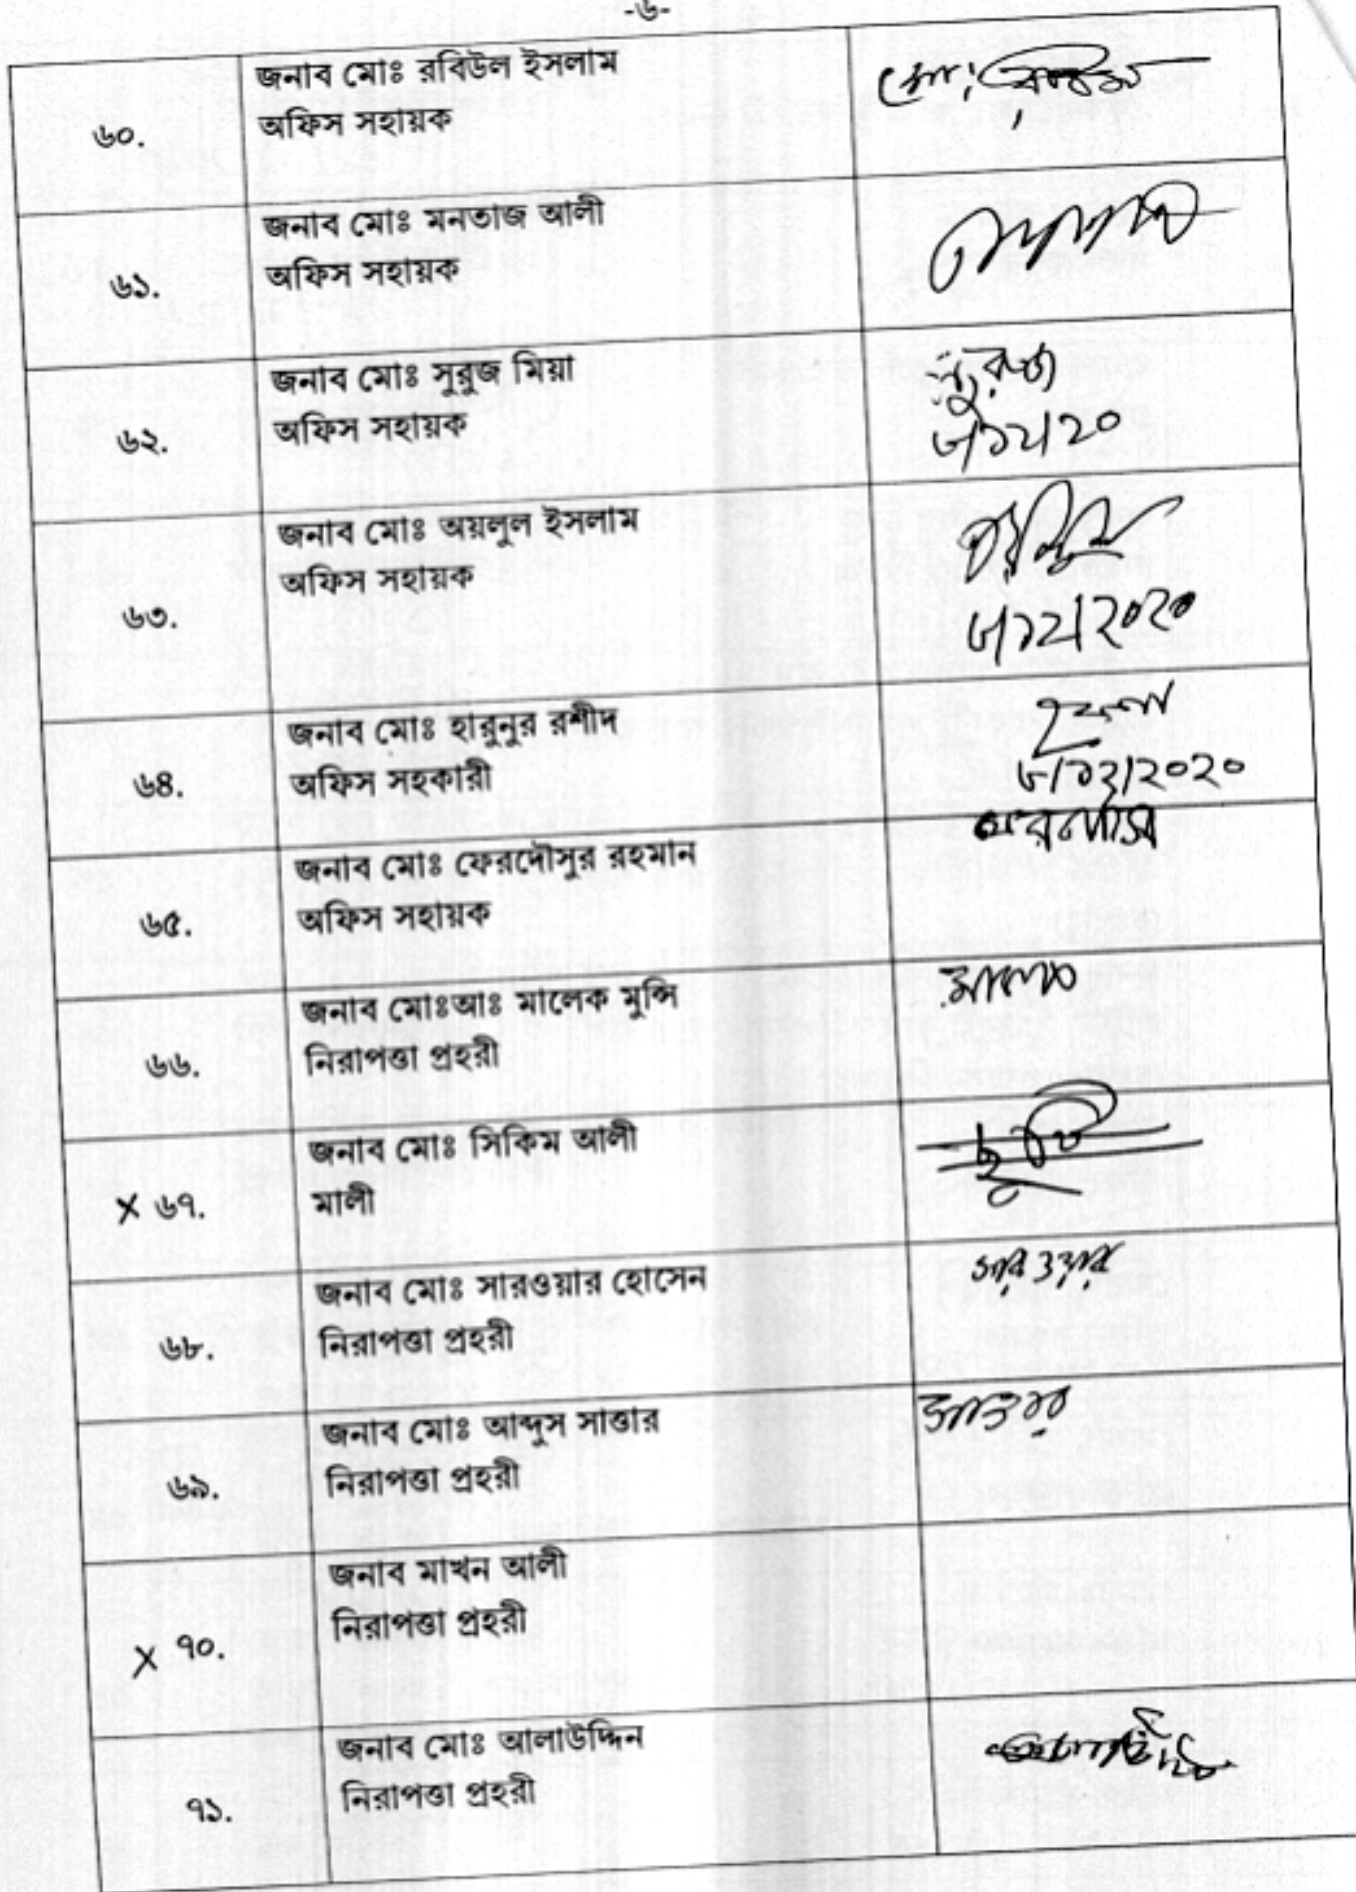 -৬-
৬০.
জনাব মোঃ রবিউল ইসলাম
অফিস সহায়ক
৬১.
জনাব মোঃ মনতাজ আলী
অফিস সহায়ক
৬২.
জনাব মোঃ সুরুজ মিয়া
অফিস সহায়ক
সুরুজ
৮/১২/২০
৬৩.
জনাব মোঃ অয়লুল ইসলাম
অফিস সহায়ক
৮/১২/২০২০
৬৪.
জনাব মোঃ হারুনুর রশীদ
অফিস সহকারী
৮/১২/২০২০
৬৫.
জনাব মোঃ ফেরদৌসুর রহমান
অফিস সহায়ক
৬৬.
জনাব মোঃআঃ মালেক মুন্সি
নিরাপত্তা প্রহরী
মালেক
X ৬৭.
জনাব মোঃ সিকিম আলী
মালী
ছুটি
৬৮.
জনাব মোঃ সারওয়ার হোসেন
নিরাপত্তা প্রহরী
সারওয়ার
৬৯.
জনাব মোঃ আব্দুস সাত্তার
নিরাপত্তা প্রহরী
X ৭০.
জনাব মাখন আলী
নিরাপত্তা প্রহরী
৭১.
জনাব মোঃ আলাউদ্দিন
নিরাপত্তা প্রহরী